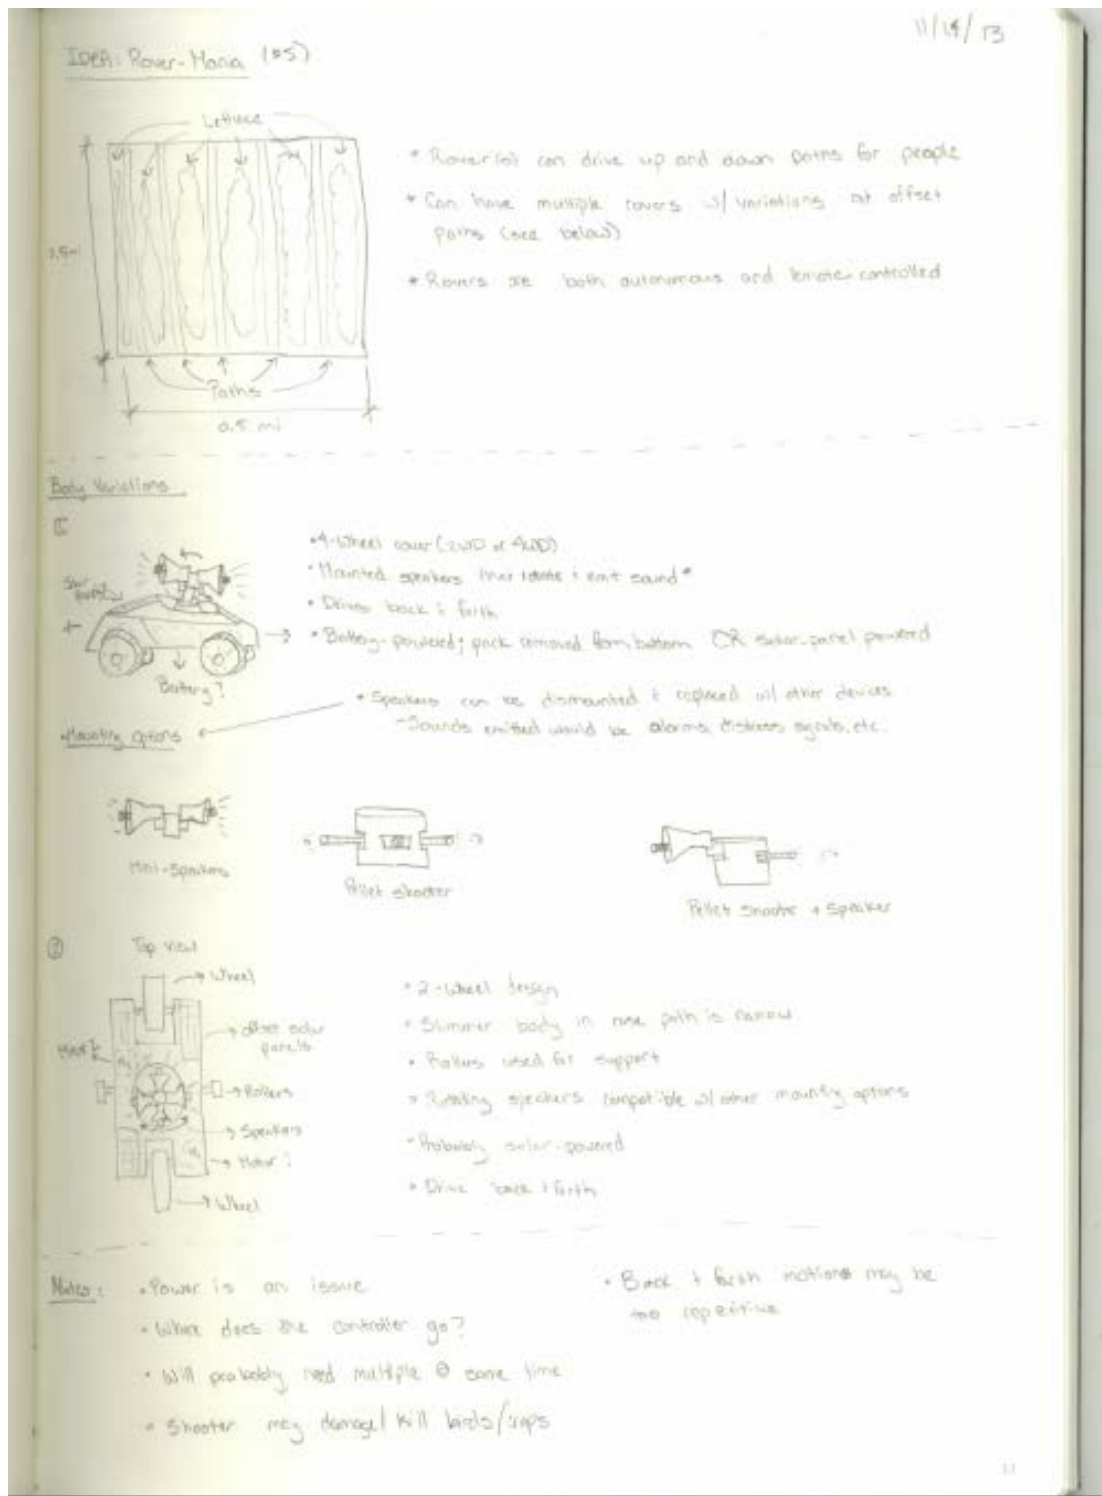 11/14/13
IDEA: Rover-Mania (#5)
Lettuce
* Rover(s) can drive up and down paths for people
* Can have multiple rovers w/ variations at offset
paths (see below)
* Rovers are both autonomous and remote-controlled
0.5mi
Paths
0.5 mi
Body Variations
• 4-Wheel rover (2WD or 4WD)
• Mounted speakers that rotate & emit sound*
• Drives back & forth
• Battery-powered; pack removed from bottom OR solar-panel powered
Battery?
* Speakers can be dismounted & replaced w/ other devices
- Sounds emitted would be alarms, distress signals, etc.
Mounting options
Mini-Speakers
Pellet shooter
Pellet shooter + Speaker
②
Top view
Wheel
offset solar
panels
Motor
Rollers
Speakers
Motor
Wheel
• 2-Wheel design
• Slimmer body in case path is narrow
• Rollers used for support
• Rotating speakers compatible w/ other mounting options
- Probably solar-powered
• Drive back & forth
Notes:
• Power is an issue
• Where does the controller go?
• Will probably need multiple @ same time
• Shooter may damage/kill birds/crops
• Back & forth motions may be
too repetitive